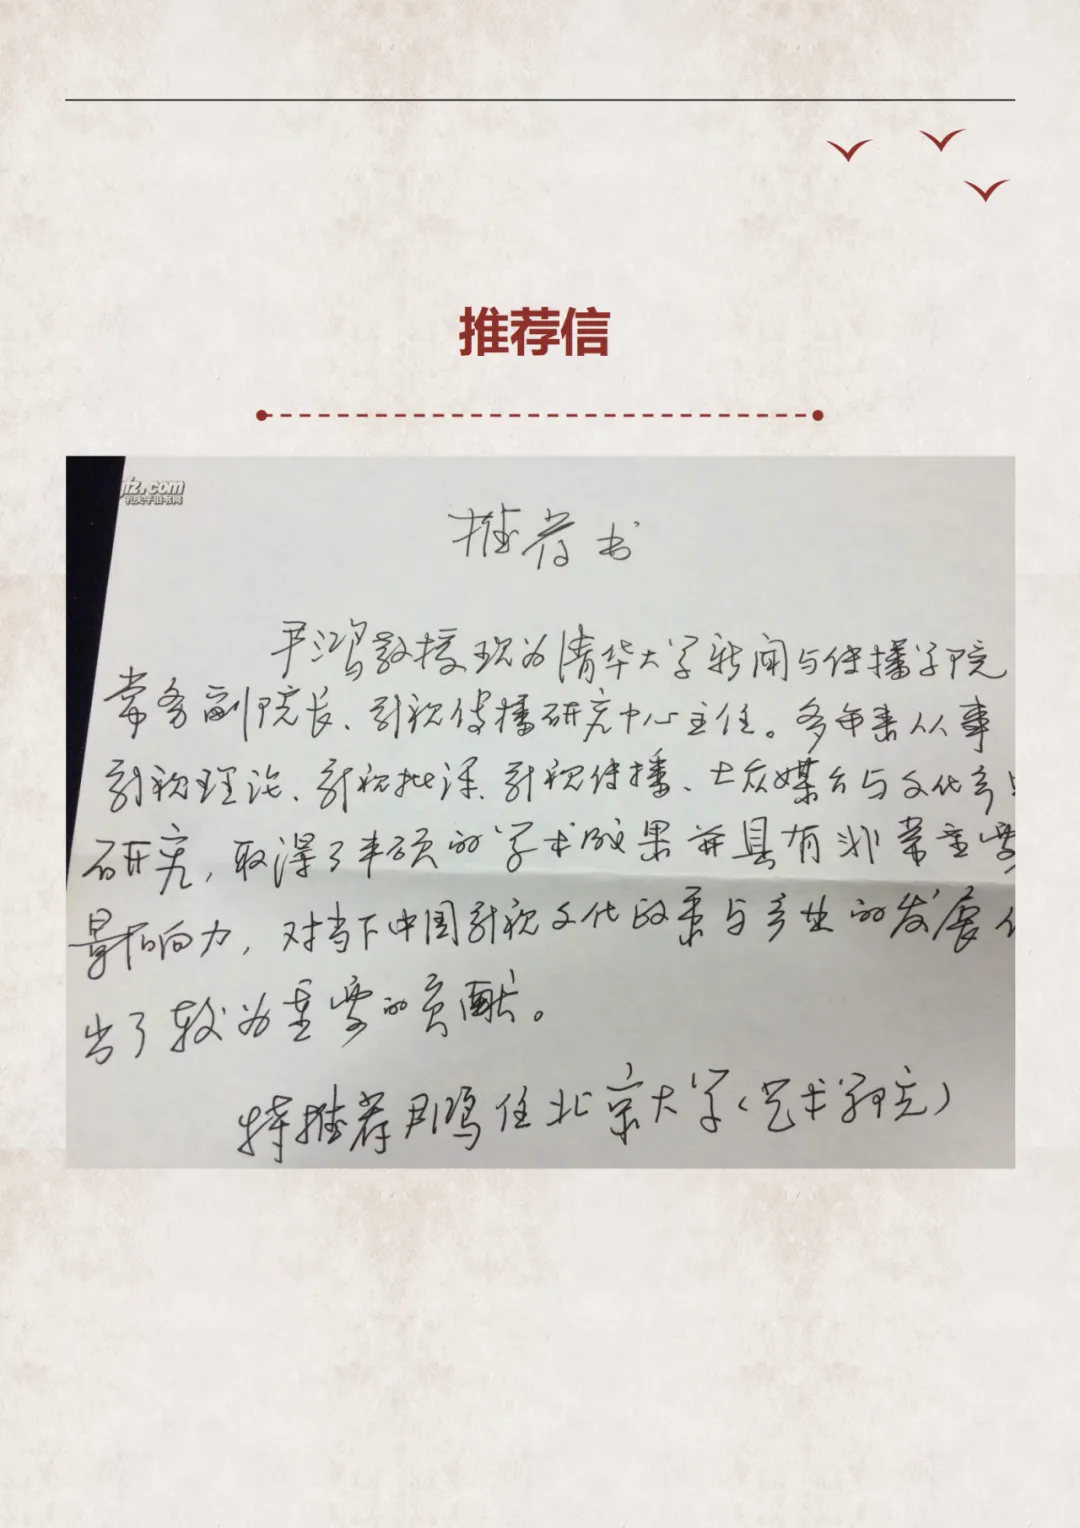 推荐信
fz.com
孔夫子旧书网
推荐书
尹鸿教授现为清华大学新闻与传播学院
常务副院长、影视传播研究中心主任。多年来从事
影视理论、影视批评、影视传播、大众媒介与文化产业
研究,取得了丰硕的学术成果并具有非常重要
影响力,对当下中国影视文化政策与产业的发展作
出了较为重要的贡献。
特推荐尹鸿任北京大学(艺术研究)